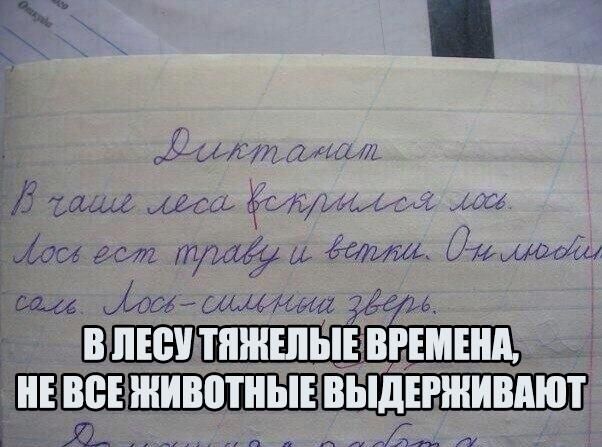 Откуда
Диктанат
В чаше леса вскрылся лось.
Лось ест траву и ветки. Он любит
соль. Лось - сильный зверь.
В ЛЕСУ ТЯЖЕЛЫЕ ВРЕМЕНА,
НЕ ВСЕ ЖИВОТНЫЕ ВЫДЕРЖИВАЮТ
Домашняя работа